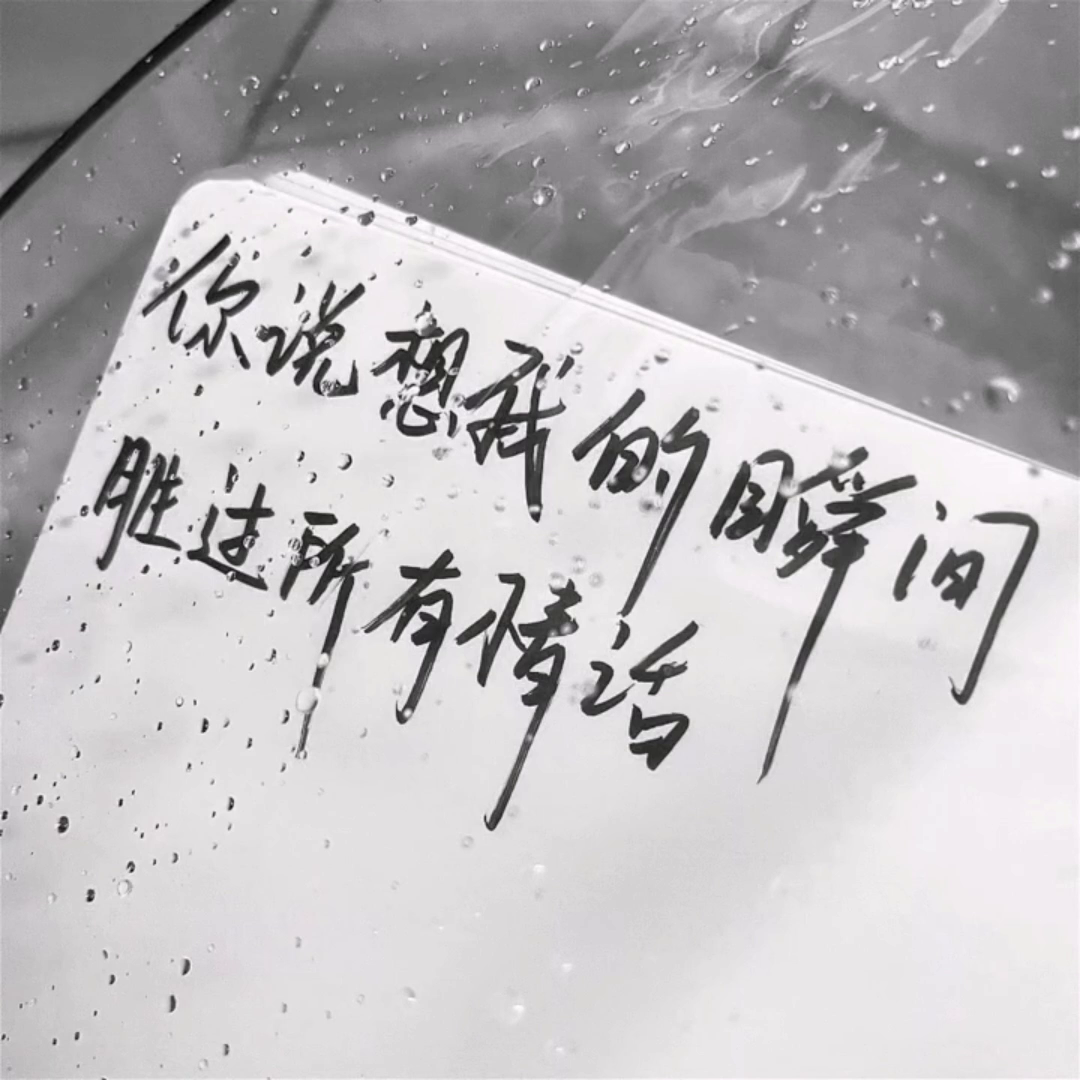 你说想我的瞬间
胜过所有情话